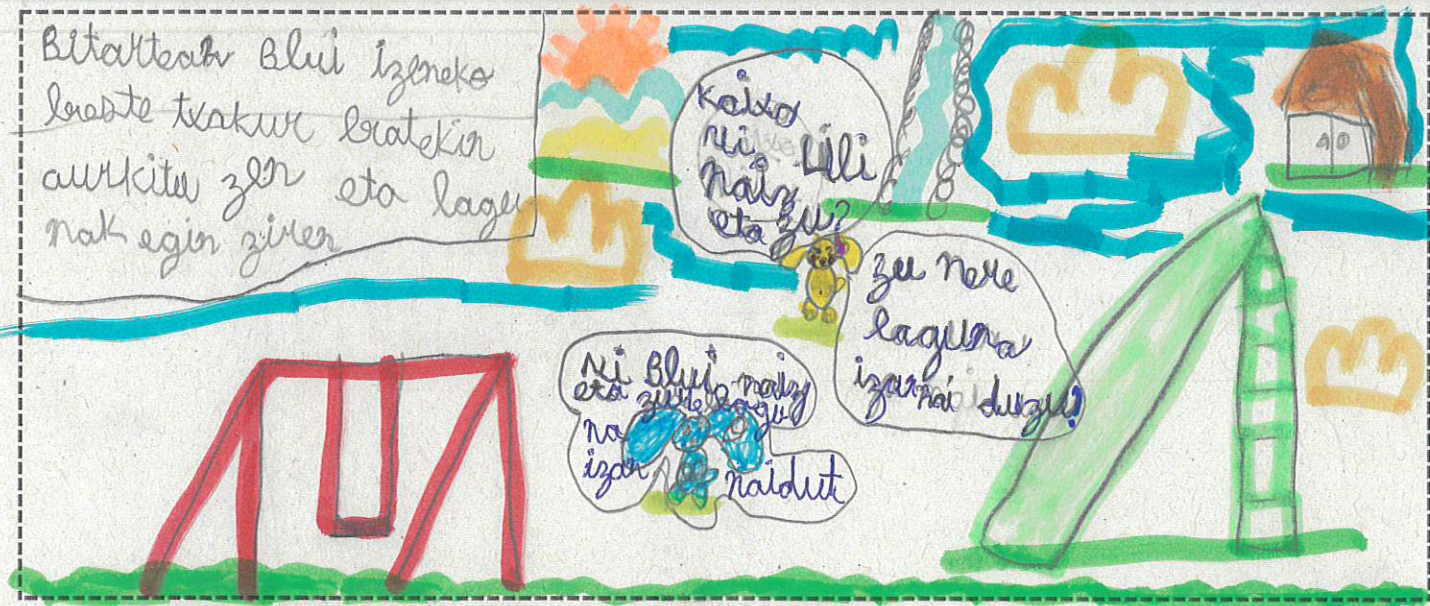 Bitartean Blui izeneko
beste txakur batekin
aurkitu zen eta lagu
nak egin ziren
Kaixo
ni Lili
naiz
eta zu?
zu nere
laguna
izan nai duzu?
ni Blui naiz
eta zure lagu
na
izan naidut